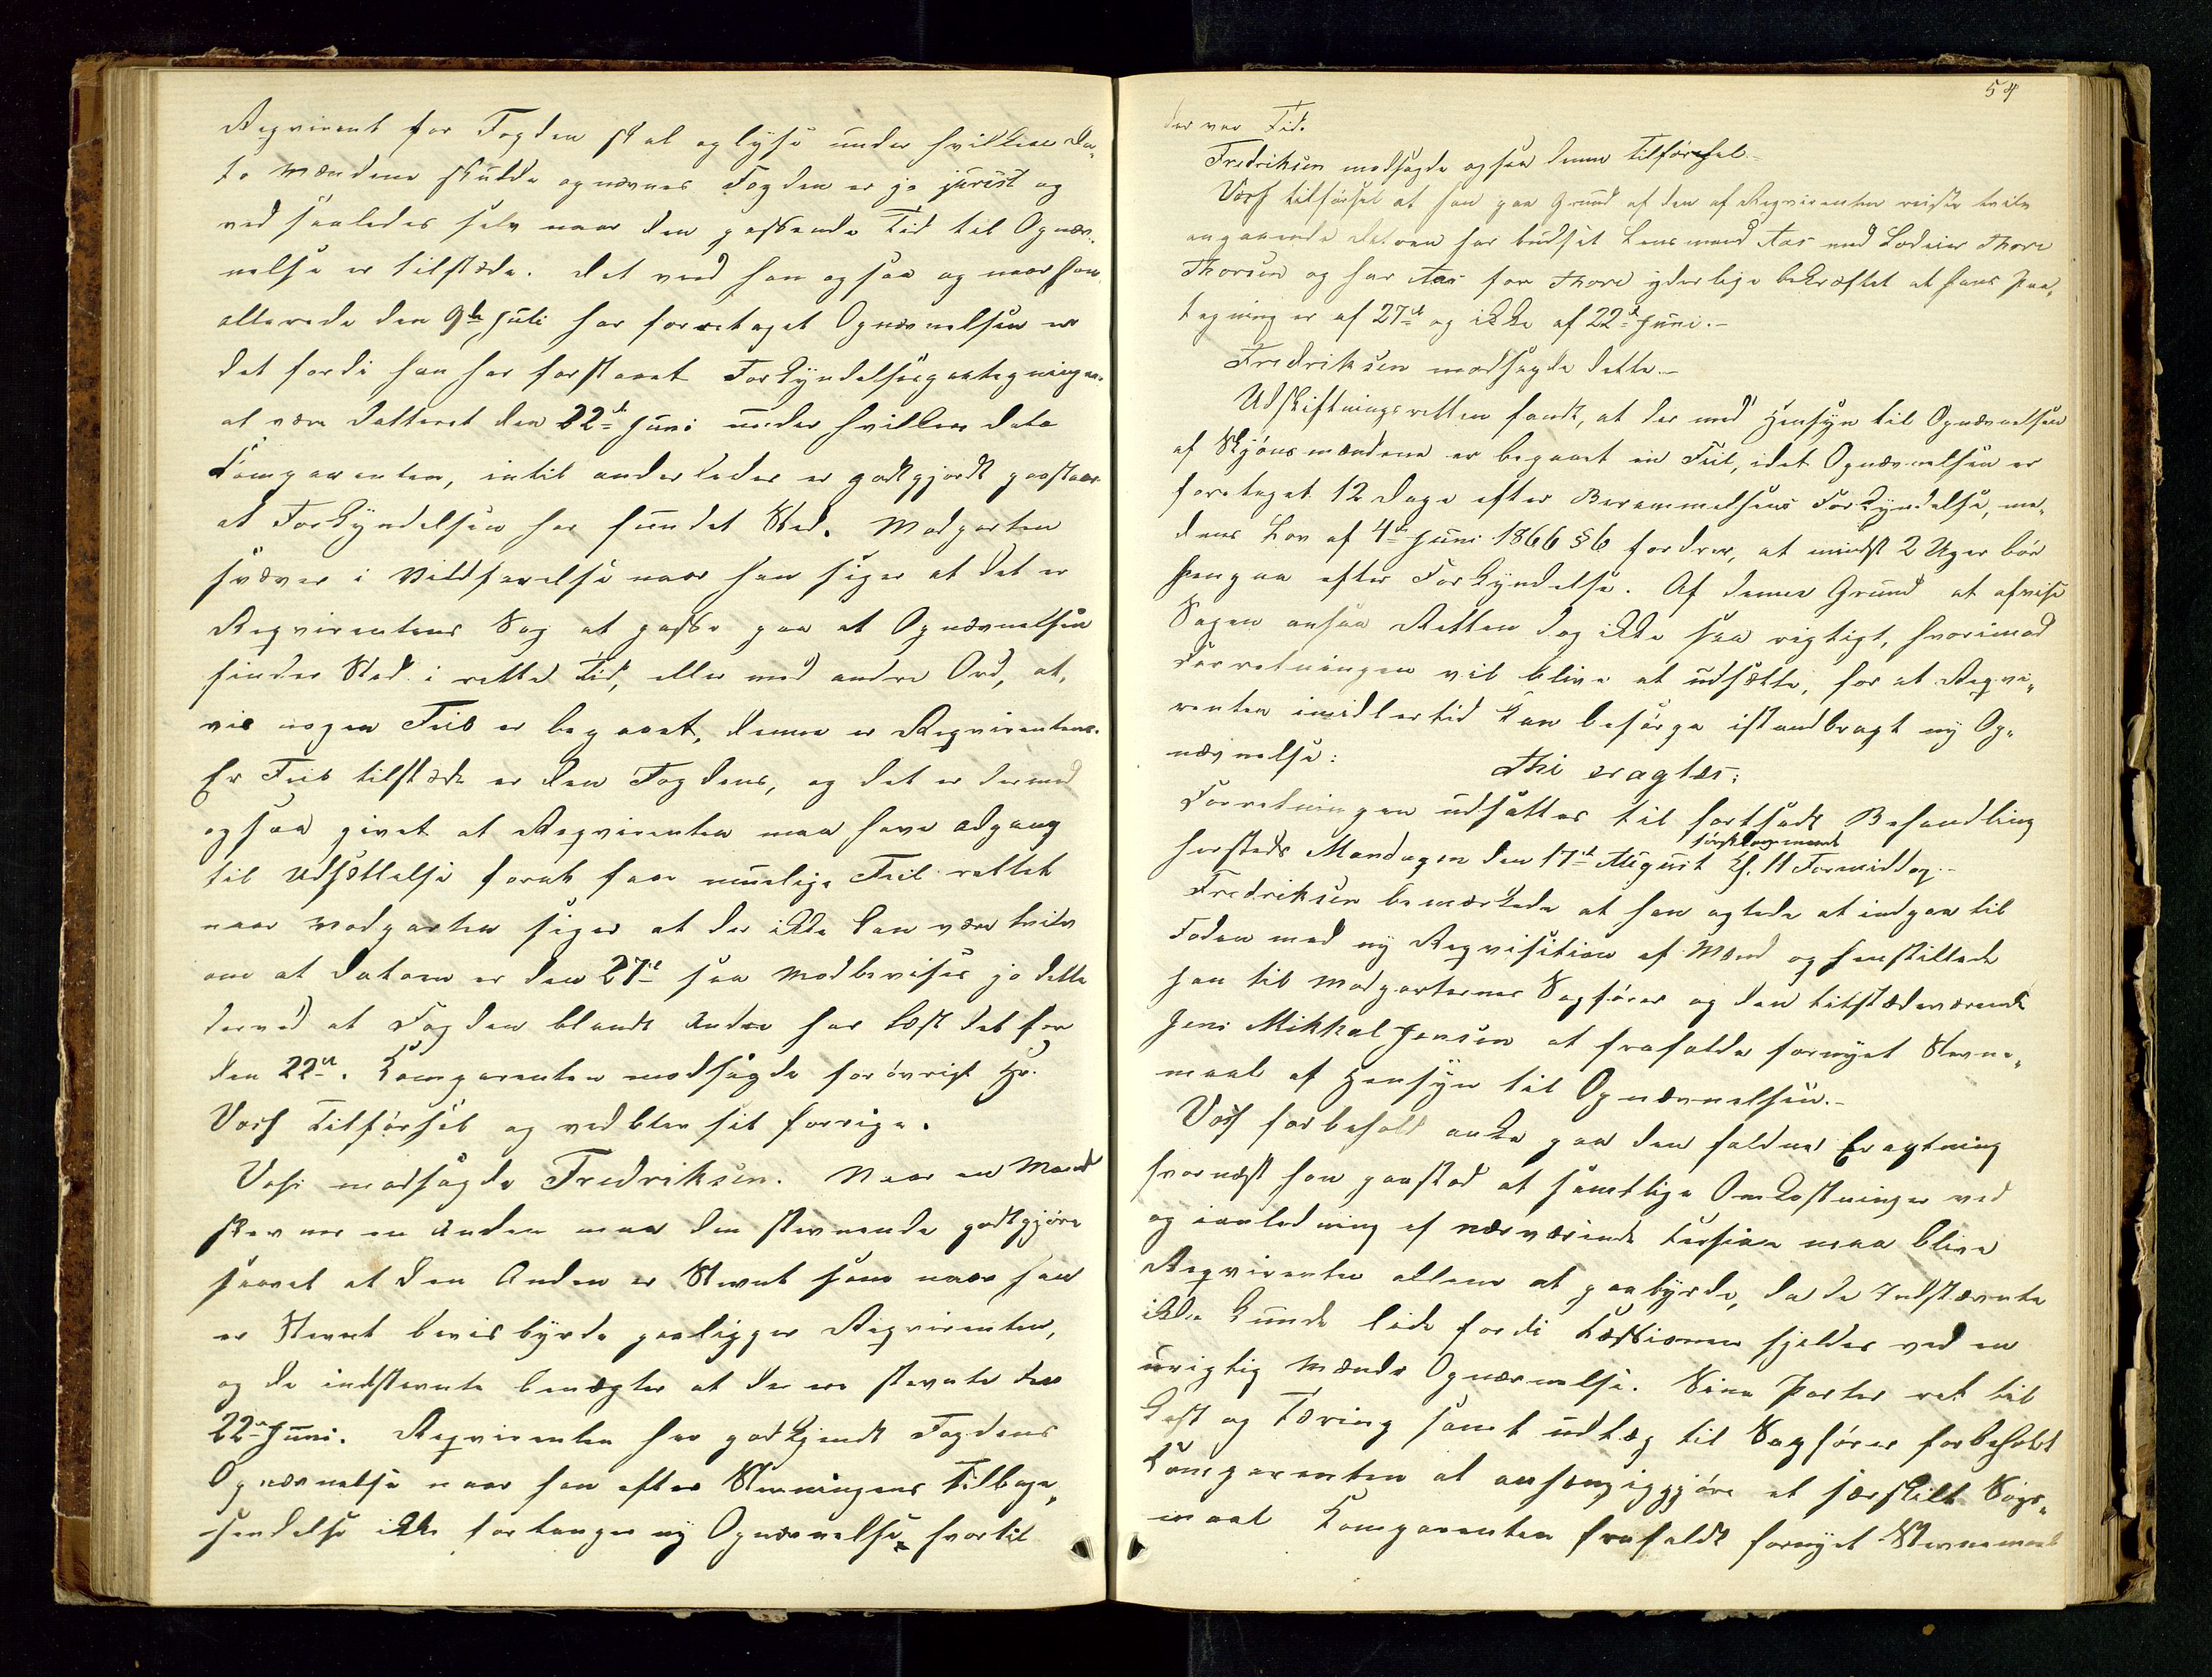 Reqvirent for Fogden skal oplyse under hvilken Da„
to Mændene skulde opnævnes Fogden er jo jurist og
ved saaledes selv naar den passende Tid til Opnæv„
nelse er tilstæde. Det ved han ogsaa og naar han
allerede den 9de Juli har foretaget Opnævnelsen er
det fordi han har forstaaet Forkyndelsespaategningen
at være datteret den 22de Juni under hvilken Dato
Comparenten, intil anderledes er godtgjordt paastaar
at Forkyndelsen har fundet Sted. Modparten
svæver i Vildfarelse naar han siger at det er
Reqvirentens Sag at passe paa at Opnævnelsen
finder Sted i rette Tid, eller med andre Ord, at,
vis nogen Feil er begaaet, denne er Reqvirentens.
Er Feil tilstæde er den Fogdens, og det er dermed
ogsaa givet at Reqvirenten maa have adgang
til Udsættelse forat faa muelige Feil rettet
naar Modparten siger at der ikke kan være tvivl
om at datoen er den 27de saa modbevises jo dette
derved at Fogden blandt Andre har læst det for
den 22de. Komparenten modsagde forøvrigt Hr.
Vosf Tilførsel og vedblev sit forrige.
Vosf modsagde Fredriksen. Naar en Mand
stevner en Anden maa den stevnende godtgjøre
saavel at den Anden er Stevnt som naar han
er Stevnt bevisbyrde paaligger Reqvirenten,
og de indstevnte benægter at de ere stevnte den
22de Juni. Reqvirenten har godkjendt Fogdens
Opnævnelse naar han efter Stevningens Tilbage„
sendelse ikke forlanger ny Opnævnelse, hvortil
54
der var Tid.
Fredriksen modsagde ogsaa denne Tilførsel.
Vosf tilførsel at han paa Grund af den af Reqvirenten reiste tvivl
angaaende Datoen har budset Lensmand Aas ved Lodeier Thore
Thorsen og har Aas for Thore yderlige bekræftet at hans Paa„
tegning er af 27de og ikke af 22de Juni.–
Fredriksen modsagde dette.–
Udskiftningsretten fandt, at der med Hensyn til Opnævnelsen
af Skjønsmændene er begaaet en Feil, idet Opnævnelsen er
foretaget 12 Dage efter Berammelsens Forkyndelse, me„
dens Lov af 4de Juni 1866 § 6 fordrer, at mindst 2 Uger bør
hengaa efter Forkyndelse. Af denne Grund at afvise
Sagen ansaa Retten dog ikke saa rigtigt, hvorimod
Forretningen vil blive at udsætte, for at Reqvi„
renten imidlertid kan besørge istandbragt ny Op„
nævnelse:
Thi eragtes:
Forretningen udsættes til fortsadt Behandling
førstkommende
hersteds Mandagen den 17de August Kl. 11 Formiddag.–
Fredriksen bemærkede at han agtede at indgaa til
Foden med ny Reqvisition af Mænd og henstillede
han til Modparternes Sagfører og den tilstædeværende
Jens Mikkal Jensen at frafalde fornyet Stevne„
maal af Hensyn til Opnævnelsen.–
Vosf forbeholdt anke paa den faldne Eragtning
hvornæst han paastod at samtlige Omkostninger ved
og ianledning af nærværende Tession maa blive
Reqvirenten allene at paabyrde, da de Indstævnte
ikke kunde lide fordi Tæssionen spildes ved en
urigtig Mænds Opnævnelse. Sine Parter ret til
Kost og Tæring samt udlæg til Sagfører forbeholdt
Komparenten at anhængiggjøre et særskilt Søgs„
maal Komparenten frafaldt fornyet Stevnemaal